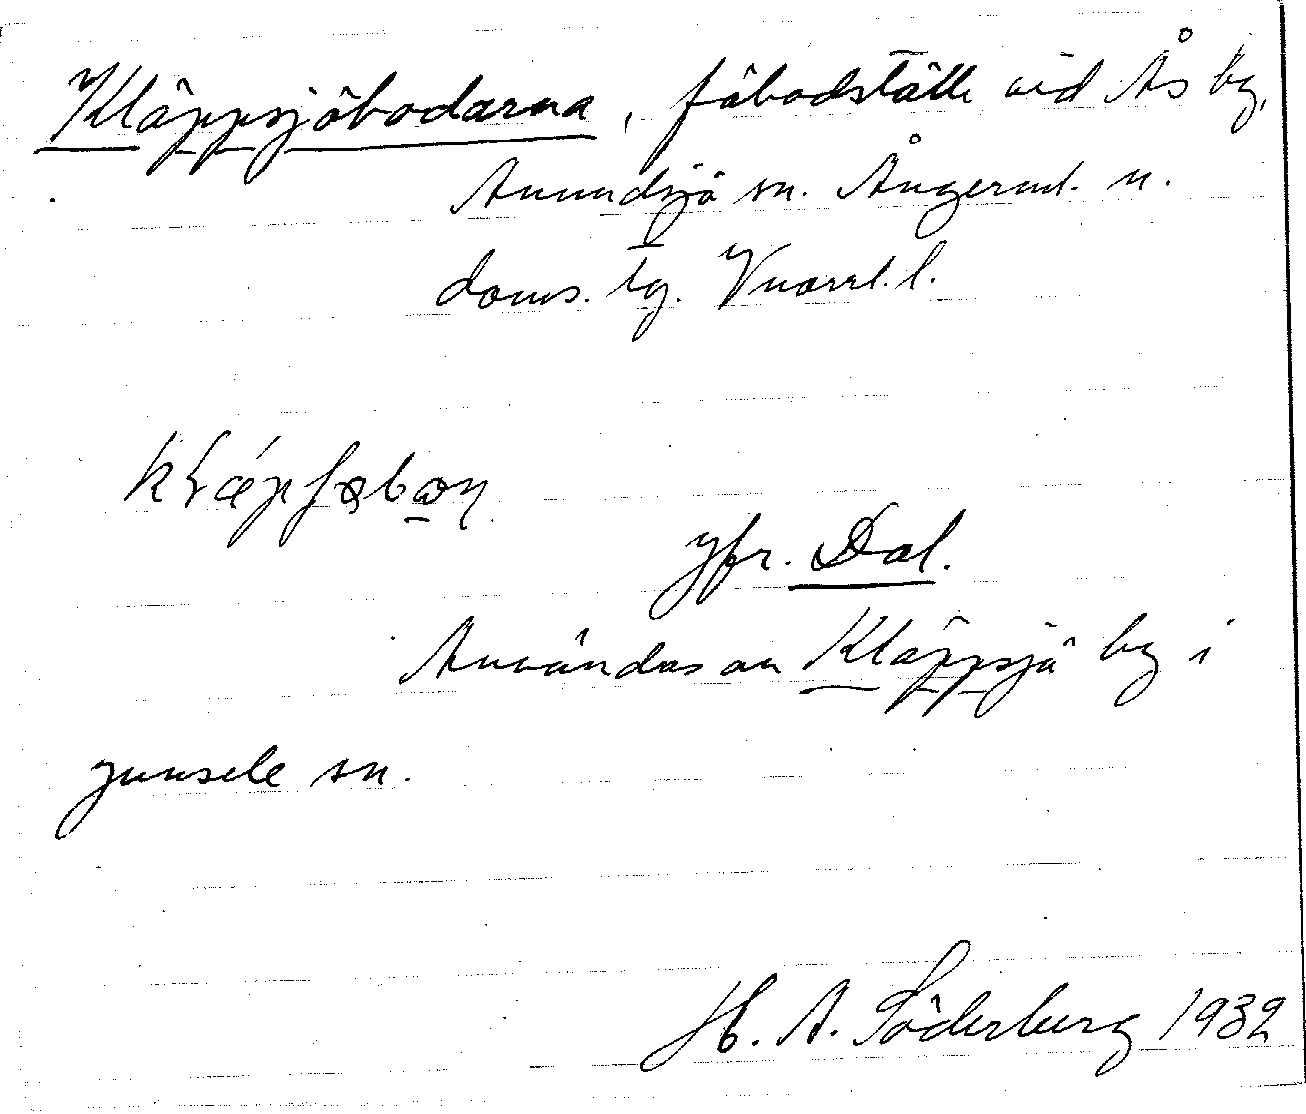 Kläppsjöbodarna, fäbodställe vid Ås by,
Anundsjö sn. Ångerml. n.
doms. tg. Vnorrl. l.
jfr. Dal.
Användas av Kläppsjö by i
Junsele sn.
H. A. Söderberg 1932